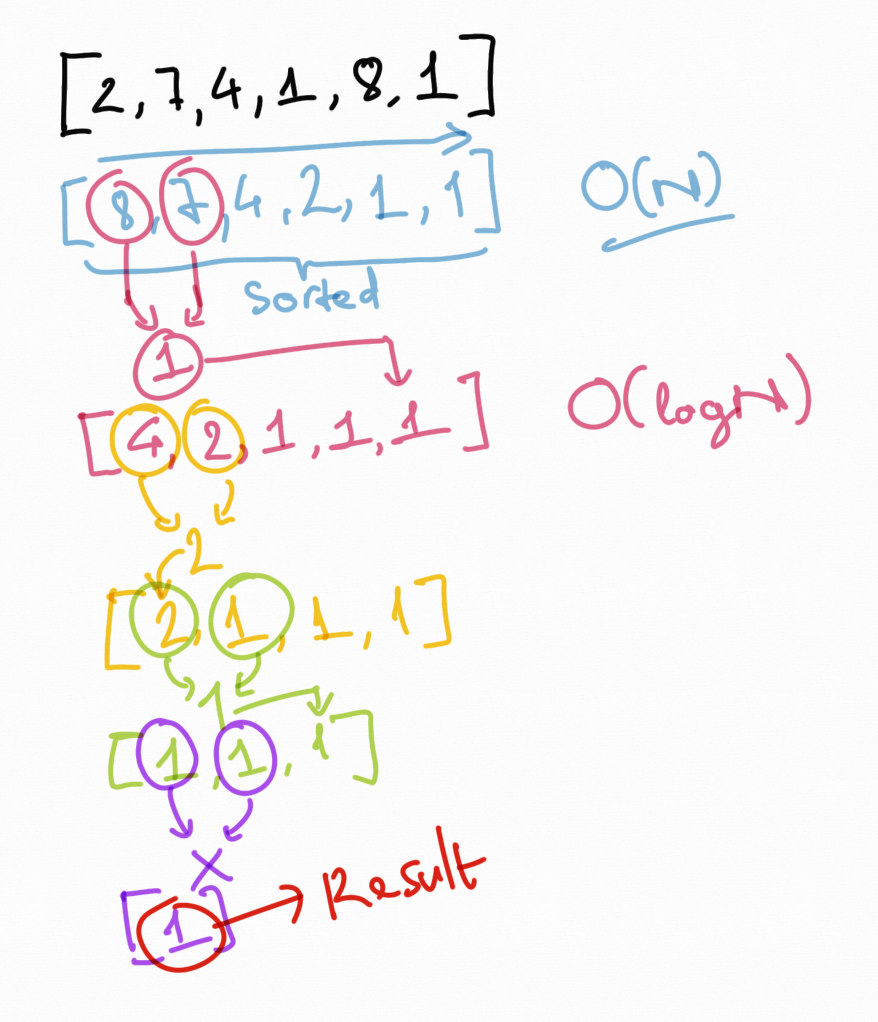 [2,7,4,1,8,1]
[8,7,4,2,1,1] O(N)
Sorted
1
[4,2,1,1,1] O(logN)
2
[2,1,1,1]
1
[1,1,1]
X
[1] Result